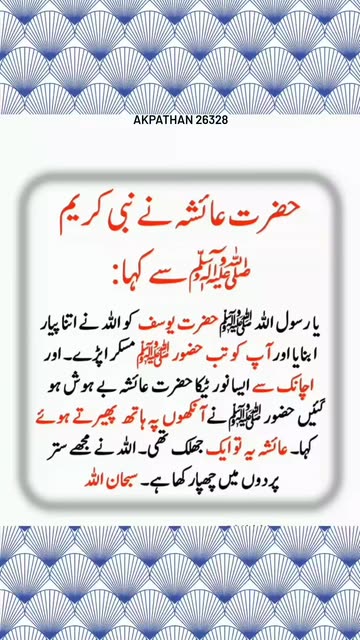 AKPATHAN 26328
حضرت عائشہ نے نبی کریم
ﷺ سے کہا:
یا رسول اللہ ﷺ حضرت یوسف کو اللہ نے اتنا پیار
ابنایا اور آپ کو تب حضور ﷺ مسکراپڑے۔ اور
اچانک سے ایسا نور ٹپکا حضرت عائشہ بے ہوش ہو
گئیں حضور ﷺ نے آنکھوں پہ ہاتھ پھیرتے ہوئے
کہا۔ عائشہ یہ تو ایک جھلک تھی۔ اللہ نے مجھے ستر
پردوں میں چھپا رکھا ہے۔ سبحان اللہ